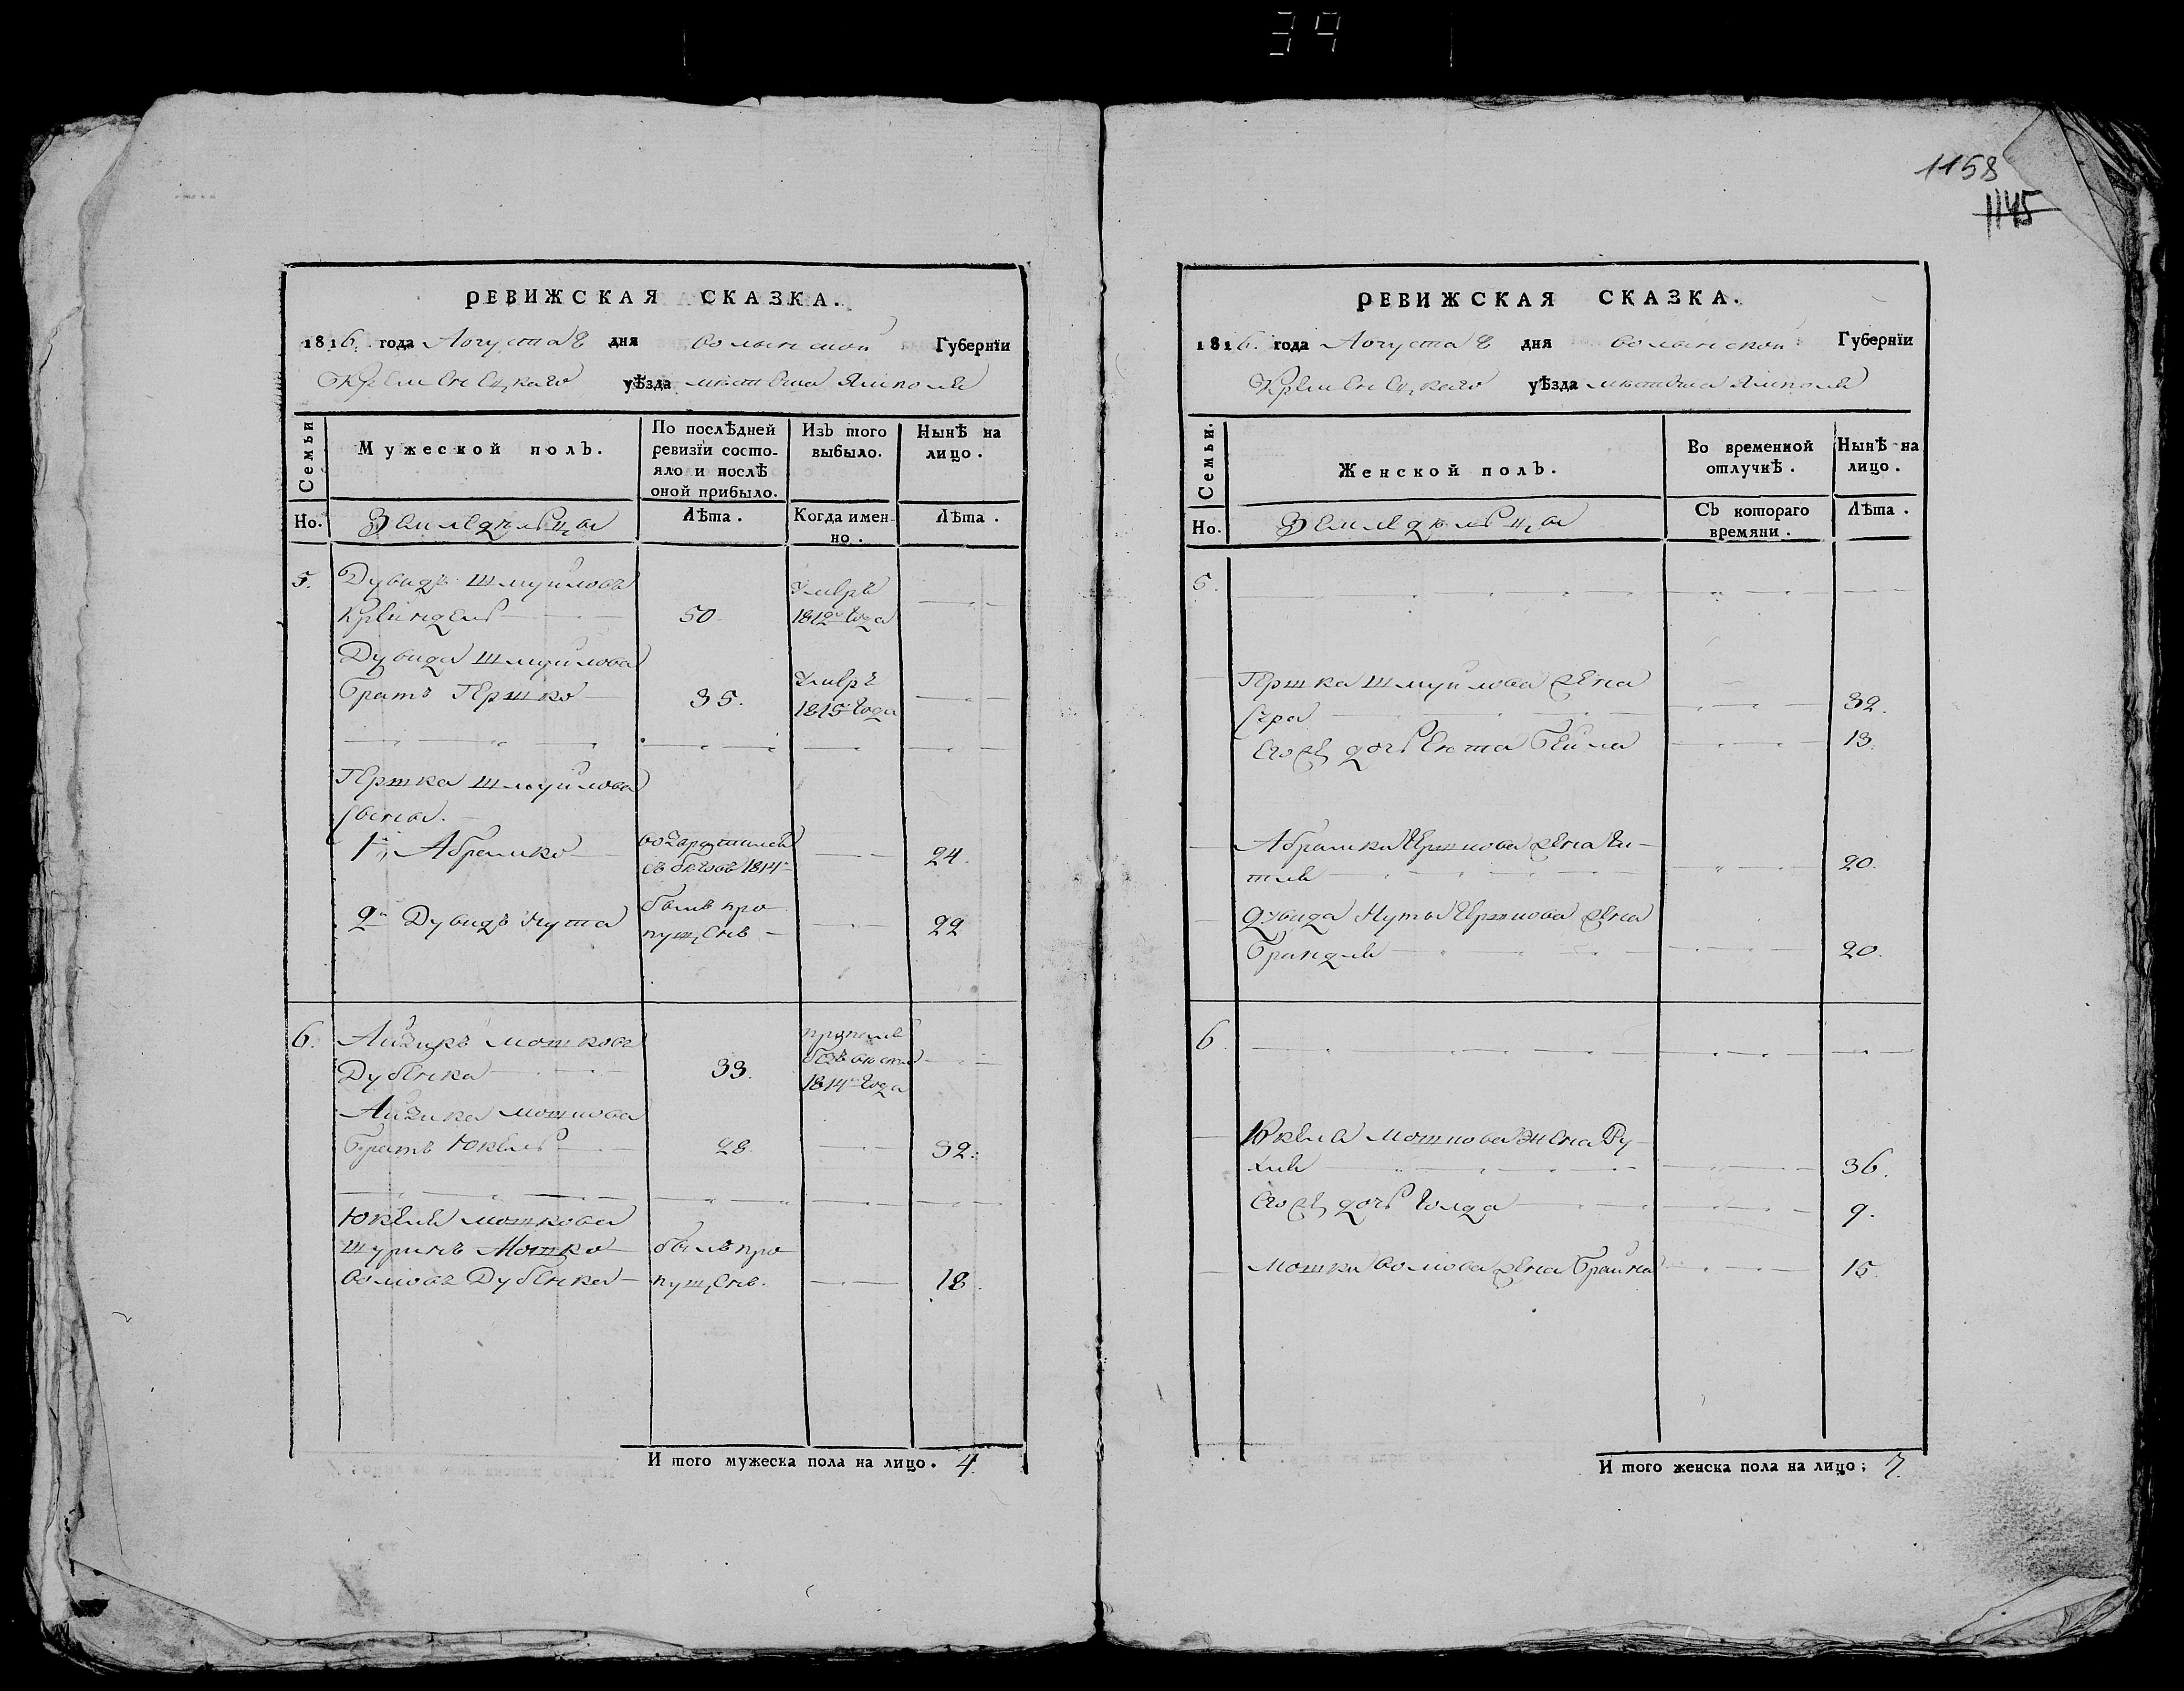 34
1158
1145
РЕВИЖСКАЯ СКАЗКА.
1816. года Августа 8 дня волынской Губернїи
Кременецкаго уѣзда местечка Ямполя
Семьи
Мужеской полъ.
По послѣдней ревизїи состояло и послѣ оной прибыло.
Изъ того выбыло.
Нынѣ на лицо.
Но.
Земледельцы
Лѣта.
Когда именно.
Лѣта.
5. Дувидъ Шмуйловъ
Крейндель 50. Умеръ 1812го года
Дувида Шмуйлова
братъ Гершко 35. Умеръ 1815 года
Гершка Шмуйлова
сыны.
1й Абрамко 24.
съ бегов 1814
2й Дувидъ Нута былъ пропущенъ 22
6. Айзикъ Мошковъ
Дубенка 33. пропалъ безъ вести 1814 года
Айзика Мошкова
братъ Юкель 28. 32.
Юкеля Мошкова
шуринъ Мошко былъ пропущенъ. 18.
Волковъ Дубенка
И того мужеска пола на лицо. 4.
РЕВИЖСКАЯ СКАЗКА.
1816. года Августа 8 дня волынской Губернїи
Кременецкаго уѣзда местечка Ямполя
Семьи.
Женской полъ.
Во временной отлучкѣ.
Нынѣ на лицо.
Но.
Земледельцы
Съ котораго времяни.
Лѣта.
5.
Гершка Шмуйлова жена
Сура 32.
Его же дочь Ента Бейла 13.
Абрамки Гершкова жена Ги-
тля 20.
Дувида Нуты Гершкова жена
Брандля 20.
6.
Юкеля Мошкова жена Ру-
хля 36.
Его же дочь Голда 9.
Мошки Волкова жена Брайна 15.
И того женска пола на лицо; 7.